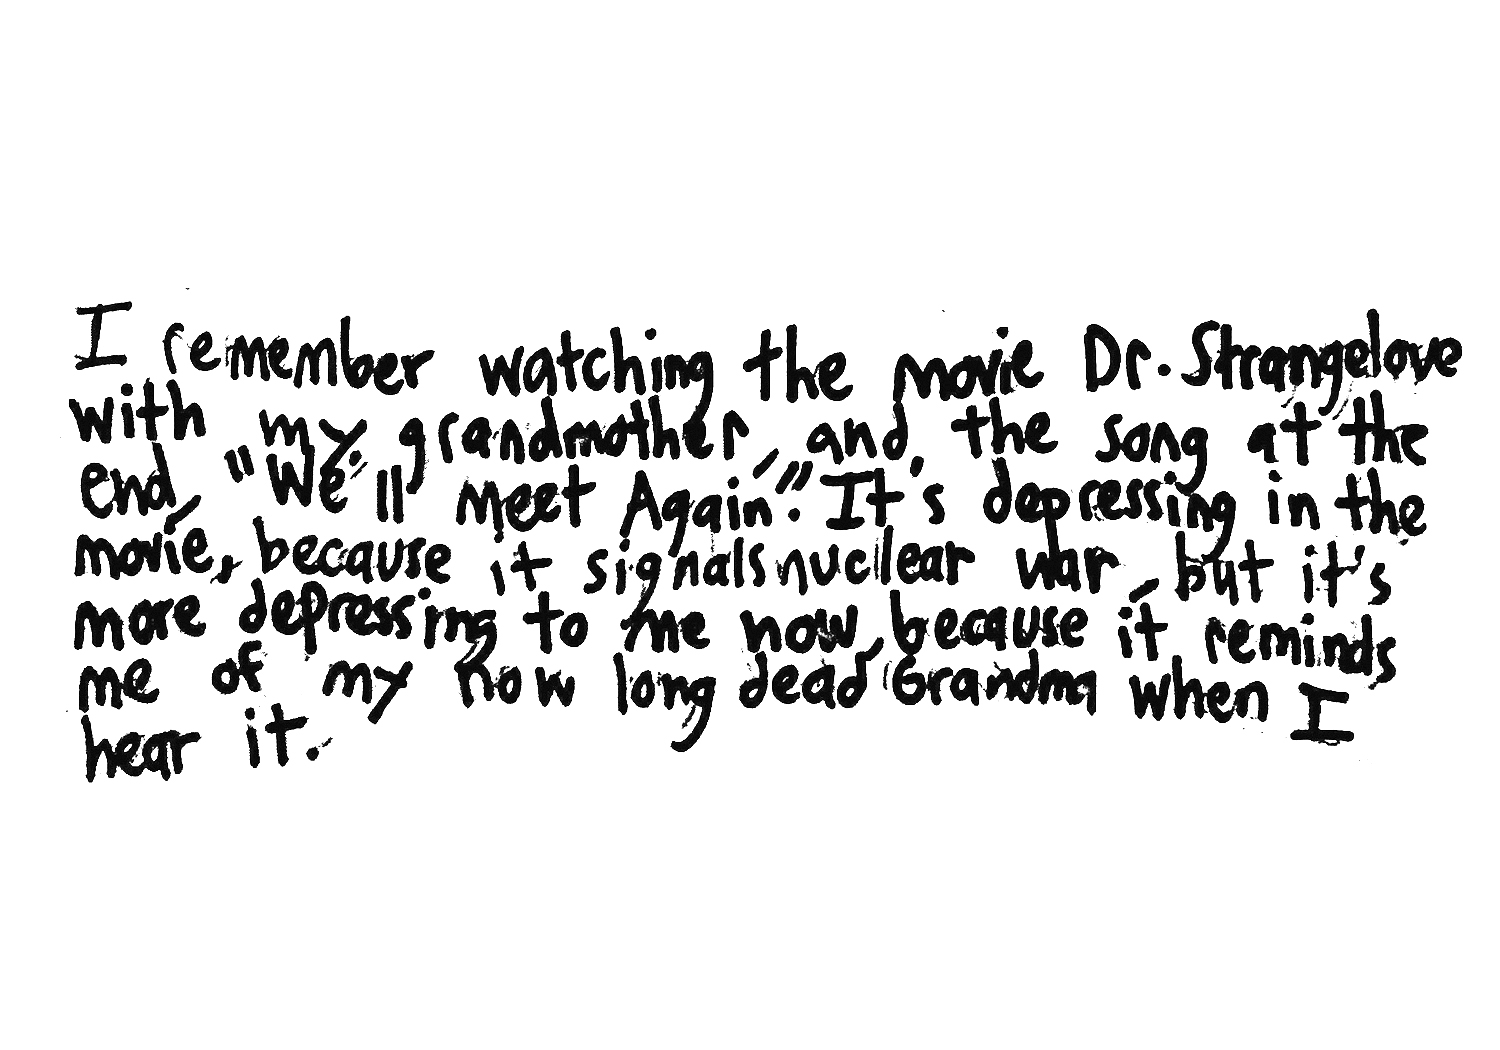 I remember watching the movie Dr. Strangelove
with my grandmother, and the song at the
end, "We'll Meet Again". It's depressing in the
movie, because it signals nuclear war, but it's
more depressing to me now, because it reminds
me of my now long dead Grandma when I
hear it.